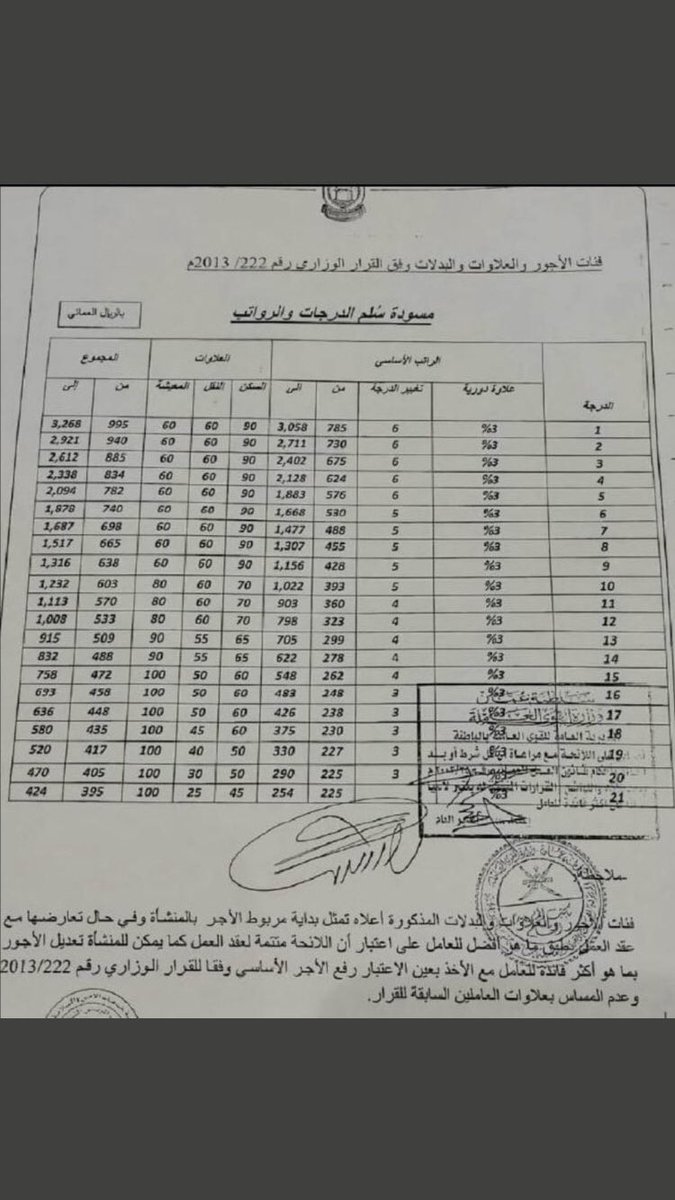 فئات الأجور والعلاوات والبدلات وفق القرار الوزاري رقم 222/ 2013م
مسودة سُلم الدرجات والرواتب
بالريال العماني
الدرجة الراتب الأساسي العلاوات المجموع
علاوة دورية تغيير الدرجة من إلى السكن النقل المعيشة من إلى
1 %3 6 785 3,058 90 60 60 995 3,268
2 %3 6 730 2,711 90 60 60 940 2,921
3 %3 6 675 2,402 90 60 60 885 2,612
4 %3 6 624 2,128 90 60 60 834 2,338
5 %3 6 576 1,883 90 60 60 782 2,094
6 %3 5 530 1,668 90 60 60 740 1,878
7 %3 5 488 1,477 90 60 60 698 1,687
8 %3 5 455 1,307 90 60 60 665 1,517
9 %3 5 428 1,156 90 60 60 638 1,316
10 %3 5 393 1,022 70 60 80 603 1,232
11 %3 4 360 903 70 60 80 570 1,113
12 %3 4 323 798 70 60 80 533 1,008
13 %3 4 299 705 65 55 90 509 915
14 %3 4 278 622 65 55 90 488 832
15 %3 4 262 548 60 50 100 472 758
16 %3 3 248 483 60 50 100 458 693
17 %3 3 238 426 60 50 100 448 636
18 %3 3 230 375 60 45 100 435 580
19 %3 3 227 330 50 40 100 417 520
20 3 225 290 50 30 100 405 470
21 225 254 45 25 100 395 424
سلطنة عمان
وزارة القوى العاملة
العامة للقوى العاملة بالباطنة
على اللائحة مع مراعاة أي شرط أو بند
أكثر فائدة للعامل
ملاحظة:-
فئات الأجور والعلاوات والبدلات المذكورة أعلاه تمثل بداية مربوط الأجر بالمنشأة وفي حال تعارضها مع
عقد العمل يطبق ما هو أفضل للعامل على اعتبار أن اللائحة متتمة لعقد العمل كما يمكن للمنشأة تعديل الأجور
بما هو أكثر فائدة للعامل مع الأخذ بعين الاعتبار رفع الأجر الأساسي وفقا للقرار الوزاري رقم 2013/222
وعدم المساس بعلاوات العاملين السابقة للقرار.